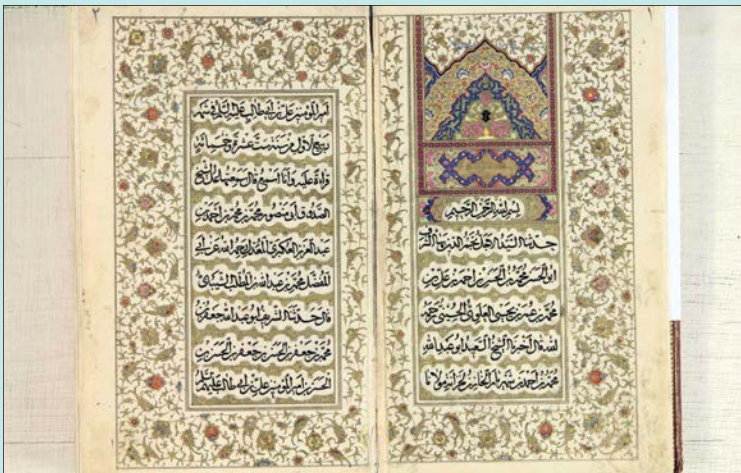 بسم الله الرحمن الرحيم
حدثنا السيد الاجل نجم الدين بهاء الشرف
ابو الحسن محمد بن الحسن بن احمد بن علي بن
محمد بن عمر بن يحيى العلوي الحسيني رحمه
الله قال اخبرنا الشيخ السعيد ابو عبد الله
محمد بن احمد بن شهريار الخازن لخزانة مولانا
٢
امير المؤمنين علي بن ابي طالب عليه السلام في شهر
ربيع الاول من سنة ست عشرة وخمسمائة
قراءة عليه وانا اسمع قال سمعتها على الشيخ
الصدوق ابي منصور محمد بن محمد بن احمد بن
عبد العزيز العكبري المعدل رحمه الله عن ابي
المفضل محمد بن عبد الله بن المطلب الشيباني
قال حدثنا الشريف ابو عبد الله جعفر بن
محمد بن جعفر بن الحسن بن جعفر بن الحسن بن
الحسن بن امير المؤمنين علي بن ابي طالب عليهم السلام